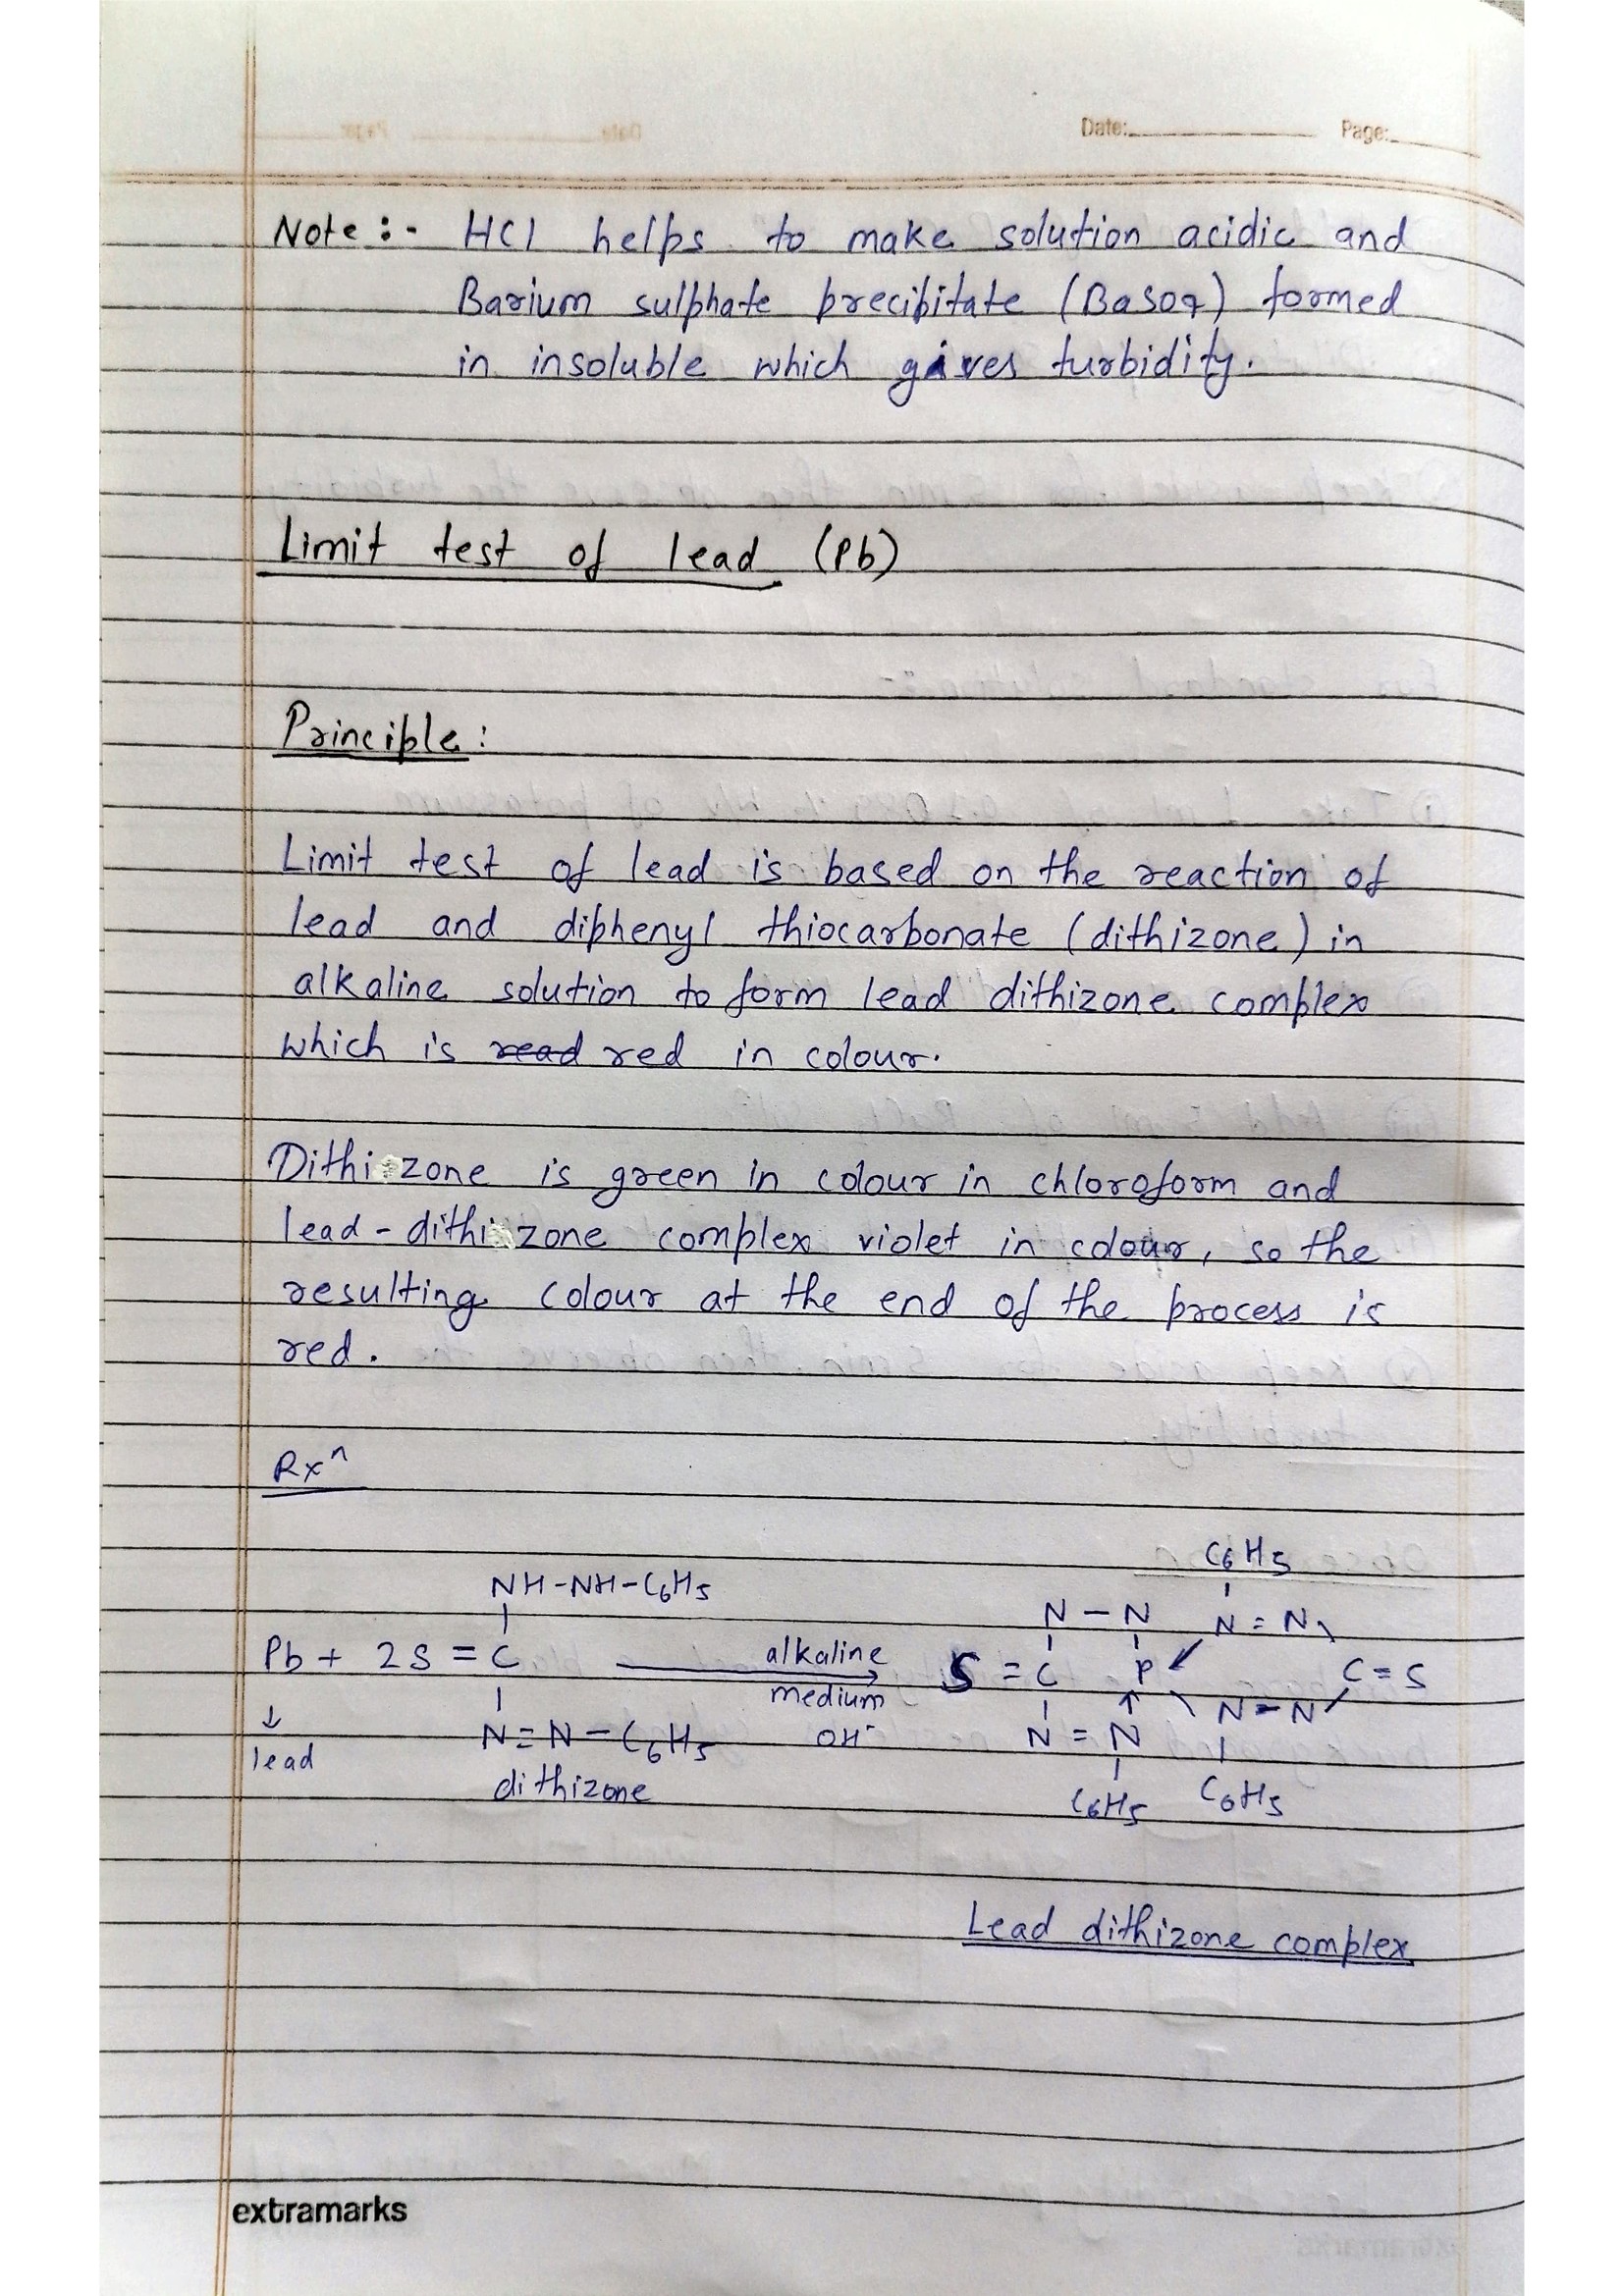 Date: Page:
Note :- HCl helps to make solution acidic and
Barium sulphate precipitate (BaSO4) formed
in insoluble which gives turbidity.
Limit test of lead (Pb)
Principle :
Limit test of lead is based on the reaction of
lead and diphenyl thiocarbonate (dithizone) in
alkaline solution to form lead dithizone complex
which is read red in colour.
Dithizone is green in colour in chloroform and
lead-dithizone complex violet in colour, so the
resulting colour at the end of the process is
red.
Rxn
C6H5
NH-NH-C6H5
N - N N = N
Pb + 2S = C alkaline S = C P C = S
medium N = N
↓ N = N - C6H5 OH- N = N
lead dithizone C6H5 C6H5
Lead dithizone complex
extramarks